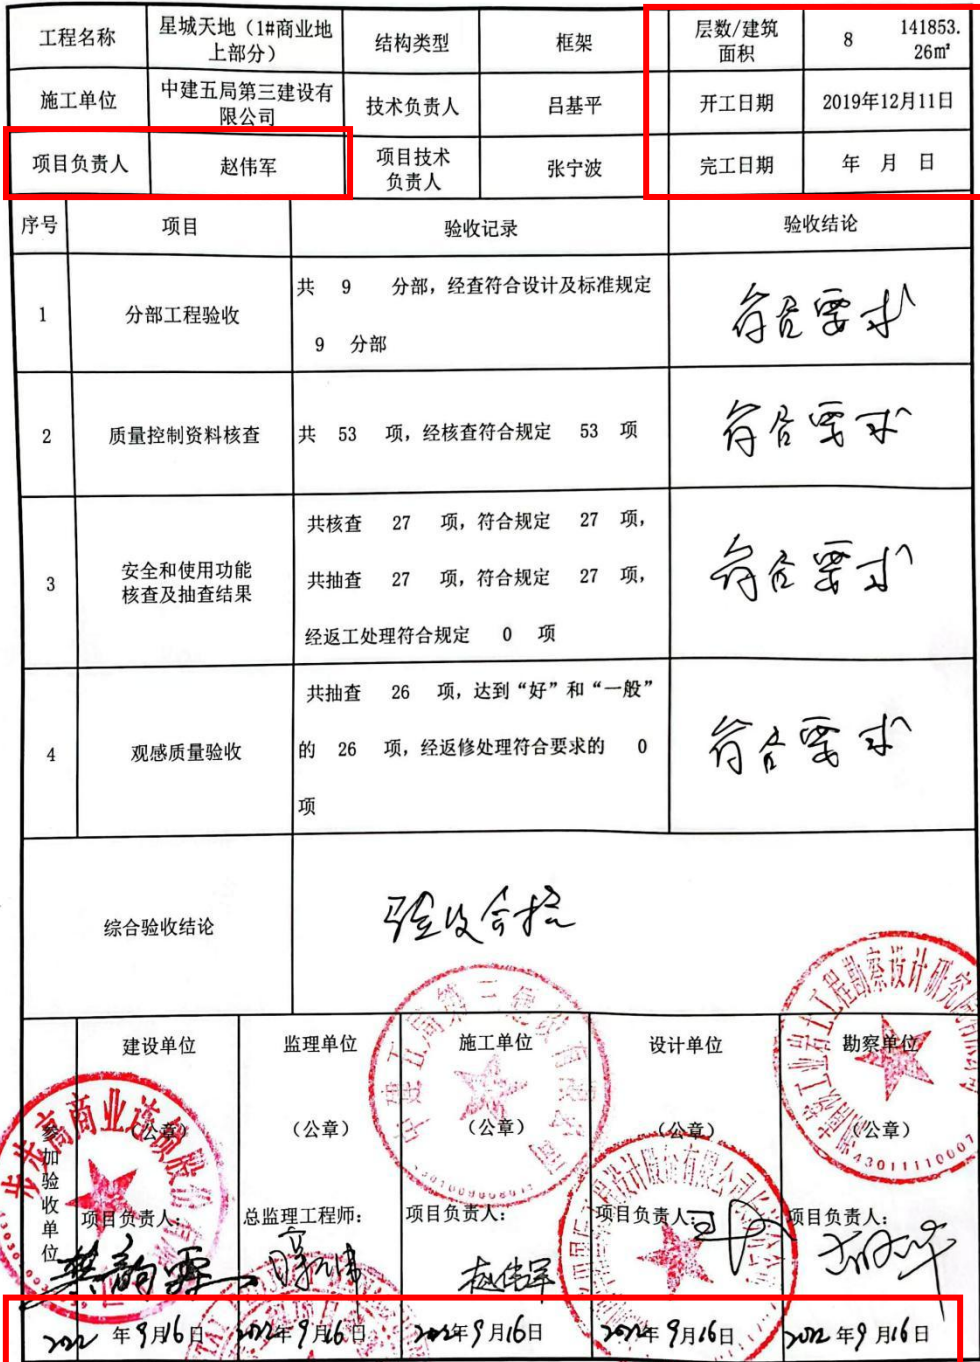 工程名称
星城天地（1#商业地
上部分）
结构类型
框架
层数/建筑
面积
8
141853.
26㎡
施工单位
中建五局第三建设有
限公司
技术负责人
吕基平
开工日期
2019年12月11日
项目负责人
赵伟军
项目技术
负责人
张宁波
完工日期
年 月 日
序号
项目
验收记录
验收结论
1
分部工程验收
共 9 分部，经查符合设计及标准规定
9 分部
符合要求
2
质量控制资料核查
共 53 项，经核查符合规定 53 项
符合要求
3
安全和使用功能
核查及抽查结果
共核查 27 项，符合规定 27 项，
共抽查 27 项，符合规定 27 项，
经返工处理符合规定 0 项
符合要求
4
观感质量验收
共抽查 26 项，达到“好”和“一般”
的 26 项，经返修处理符合要求的 0
项
符合要求
综合验收结论
验收合格
参加验收单位
建设单位
（公章）
项目负责人：
2022年9月16日
监理单位
（公章）
总监理工程师：
2022年9月16日
施工单位
（公章）
项目负责人：
赵伟军
2022年9月16日
设计单位
（公章）
项目负责人：
2022年9月16日
勘察单位
（公章）
项目负责人：
2022年9月16日